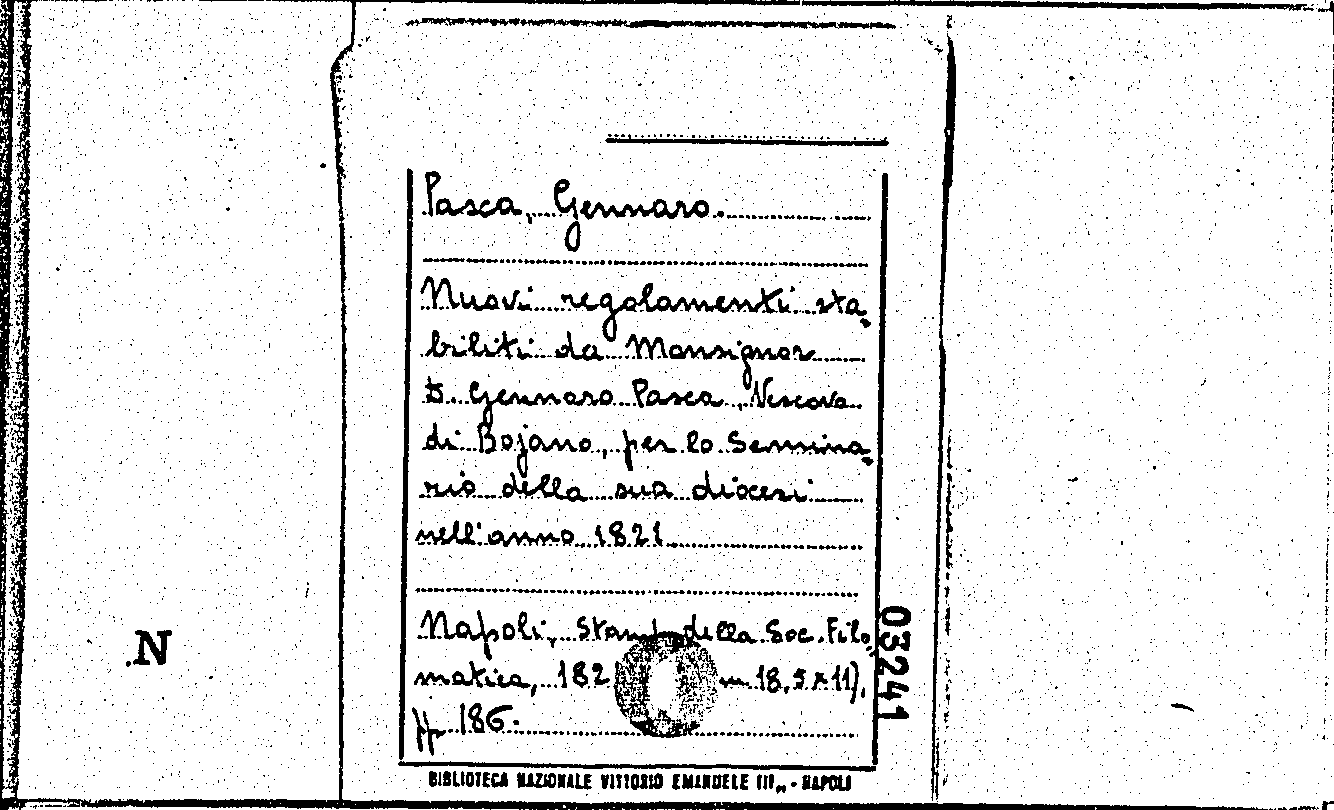 Pasca, Gennaro.
Nuovi regolamenti sta„
biliti da Monsignor
D. Gennaro Pasca, Vescovo
di Bojano, per lo Semina„
rio della sua diocesi
nell'anno 1821
Napoli, Stamp. della Soc. Filo„
matica, 182 m 18,5 x 11),
pp 186.
03241
.N
BIBLIOTECA NAZIONALE VITTORIO EMANUELE III„ - NAPOLI